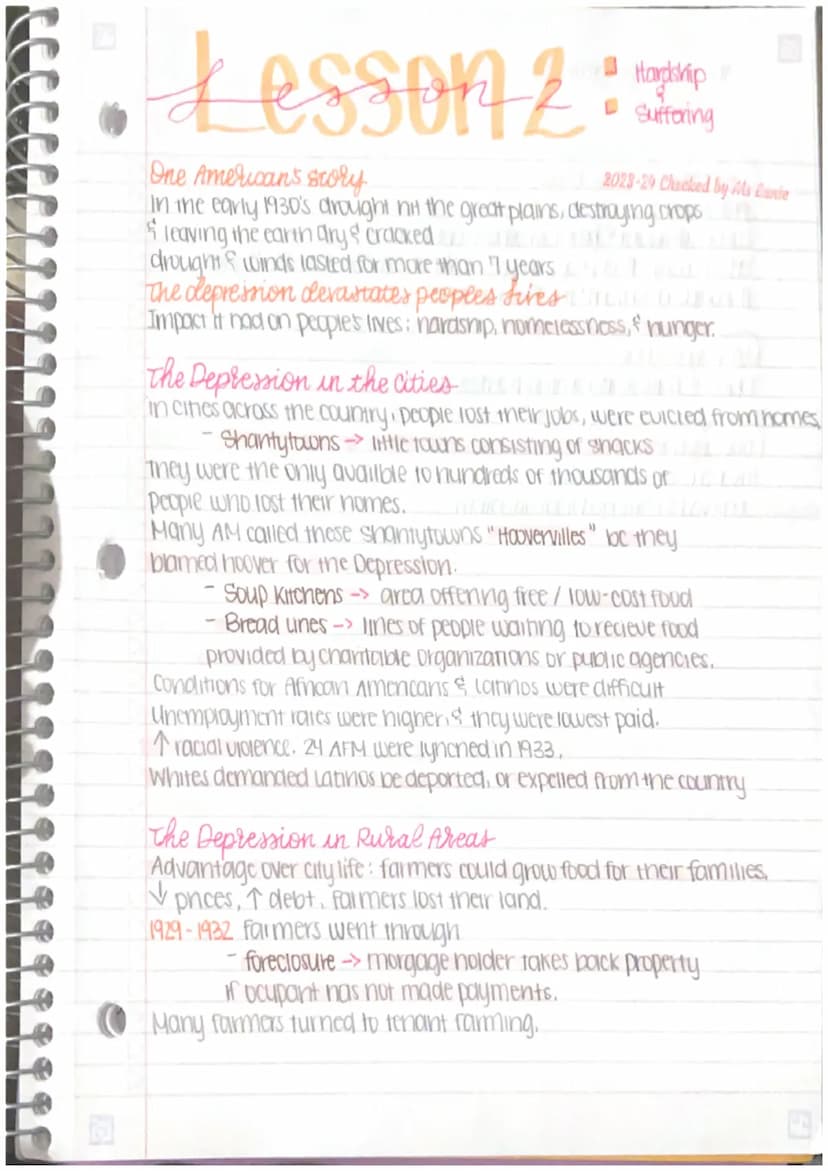 Lesson 2
Lesson 2
Hardship
&
Suffering
One American's story
2023-24 Checked by Ms
In the early 1930's drought hit the great plains, destroying crops
& leaving the earth dry & cracked
drought & winds lasted for more than 7 years
The depression devastates peoples lives
Impact it had on people's lives: hardship, homelessness, & hunger.
The Depression in the Cities
In cities across the country, people lost their jobs, were evicted from homes,
- Shantytowns -> little towns consisting of shacks
they were the only availble to hundreds of thousands of
people who lost their homes.
Many AM called these shantytowns "Hoovervilles" bc they
blamed hoover for the Depression.
- Soup Kitchens -> area offering free / low-cost food
- Bread lines -> lines of people waiting to recieve food
provided by charitable organizations or public agencies.
Conditions for African Americans & Latinos were difficult
Unemployment rates were higher, & they were lowest paid.
↑ racial violence. 24 AFM were lynched in 1933.
Whites demanded Latinos be deported, or expelled from the country
The Depression in Rural Areas
Advantage over city life: farmers could grow food for their families.
↓ prices, ↑ debt, farmers lost their land.
1929-1932 farmers went through
- foreclosure -> morgage holder takes back property
if ocupant has not made payments.
Many farmers turned to tenant farming.